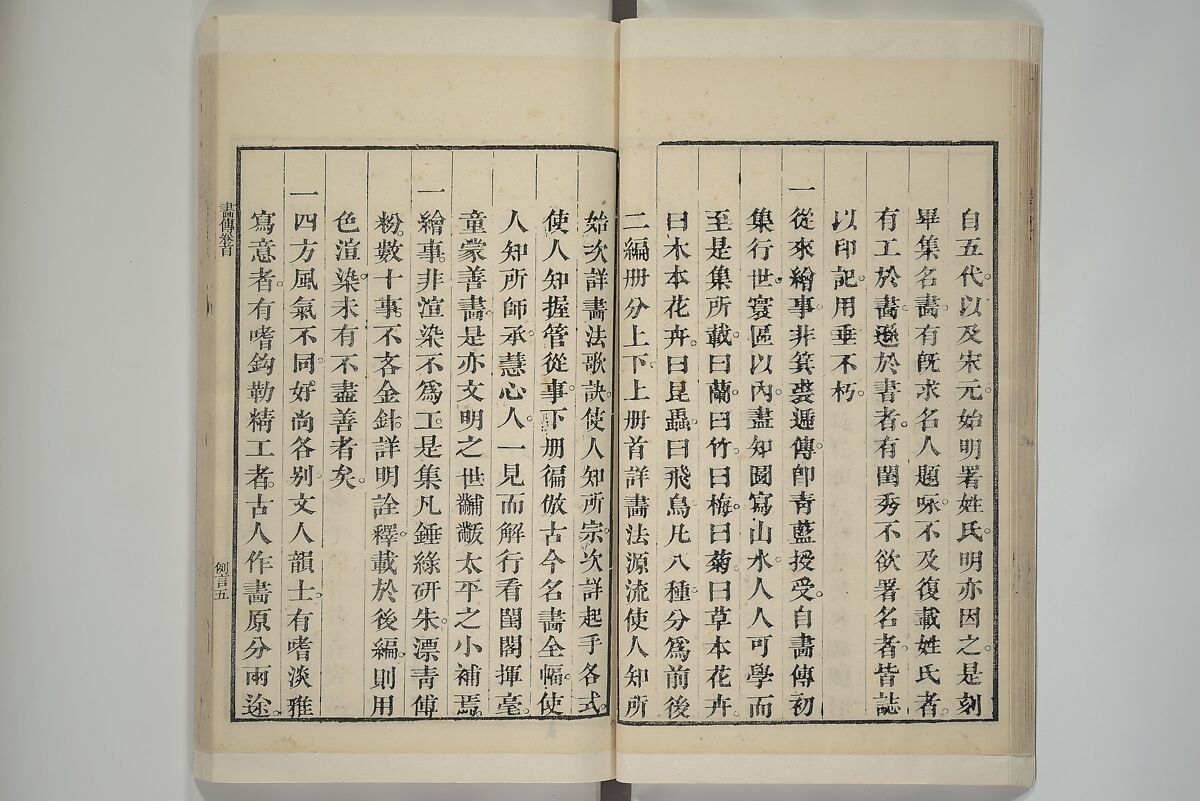 自五代。以及宋元。始明署姓氏。明亦因之。是刻
畢集名畵。有既求名人題咏。不及復載姓氏者。
有工於畵。遜於書者。有閨秀不欲署名者。皆誌
以印記。用垂不朽。
一從來繪事。非箕裘遞傳。卽青藍授受。自畵傳初
集行世。寰區以內。盡知圖寫山水。人人可學。而
至是集所載。曰蘭。曰竹。曰梅。曰菊。曰草本花卉。
曰木本花卉。曰昆蟲。曰飛鳥。凡八種。分爲前後
二編。册分上下。上册首詳畵法源流。使人知所
始。次詳畵法歌訣。使人知所宗。次詳起手各式。
使人知握管從事。下册徧倣古今名畵全幅。使
人知所師承。慧心人。一見而解。行看閨閣揮毫。
童蒙善畵。是亦文明之世。黼黻太平之小補焉。
一繪事。非渲染不爲工。是集凡錘綠研朱。漂青傅
粉。數十事。不吝金針。詳明詮釋。載於後編。則用
色渲染。未有不盡善者矣。
一四方風氣不同。好尚各别。文人韻士。有嗜淡雅
寫意者。有嗜鈎勒精工者。古人作畵。原分兩途。
畵傳卷首
例言五